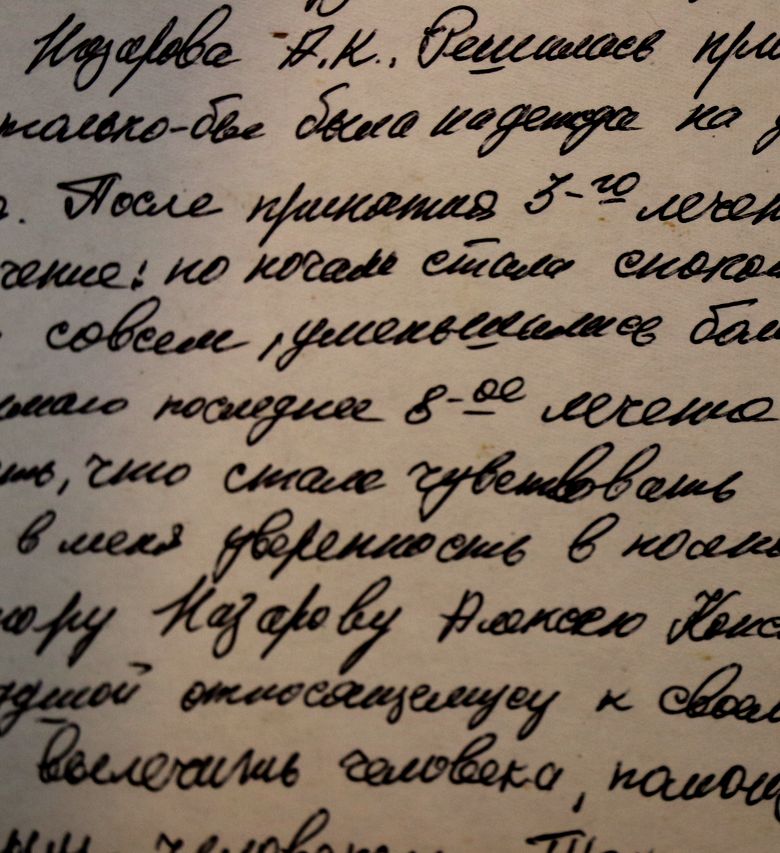 Назарова А.К. Решилась при
только-бы была надежда на
. После принятия 3-го лечен
чение: по ночам стала спокой
совсем, уменьшились бол
имаю последнее 8-ое лечение
ть, что стала чувствовать
в меня уверенность в полн
тору Назарову Алексею Конс
душой относящемуся к своем
вылечить человека, помоч
ным человеком.